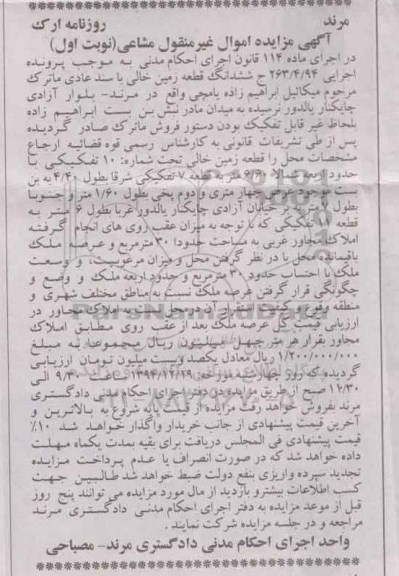 مرند روزنامه ارک
آگهی مزایده اموال غیرمنقول مشاعی(نوبت اول)
در اجرای ماده ۱۱۴ قانون اجرای احکام مدنی به موجب پرونده
اجرایی ۲۶۳/۴/۹۴ ج ششدانگ قطعه زمین خالی با سند عادی ماترک
مرحوم میکائیل ابراهیم زاده یامچی واقع در مرند- بلوار آزادی
چایکنار یالدور نرسیده به میدان مادر نبش بن بست ابراهیم زاده
بلحاظ غیر قابل تفکیک بودن دستور فروش ماترک صادر گردیده
پس از طی تشریفات قانونی به کارشناس رسمی قوه قضائیه ارجاع
مشخصات محل را قطعه زمین خالی تحت شماره: ۱۰ تفکیکی با
حدود اربعه شمالا ۶/۵ متر به قطعه ۷ تفکیکی شرقا بطول ۴/۴۰ به بن
بست موجود عرض چهار متری و دوم پخی بطول ۱/۶۰ متر و جنوبا
بطول ۷ متر به بر خیابان آزادی چایکنار یالدور غربا بطول ۶ متر به
قطعه ۱۱ تفکیکی که با توجه به میزان عقب روی های انجام گرفته
املاک مجاور غربی به مساحت حدودا ۳۰ مترمربع و عرصه ملک
باقیمانده محل با در نظر گرفتن محل و میزان مرغوبیت، و وسعت
ملک با احتساب حدود ۳۰ مترمربع و حدود اربعه ملک و وضع و
چگونگی قرار گرفتن عرصه ملک نسبت به مناطق مختلف شهری و
منطقه مجاور در
ارزیابی قیمت کل عرصه ملک بعد از عقب روی مطابق املاک
مجاور بقرار هر متر چهل میلیون ریال مجموعا به مبلغ
۱/۲۰۰/۰۰۰/۰۰۰ ریال معادل یکصد و بیست میلیون تومان ارزیابی
گردیده که روز چهارشنبه مورخه: ۱۳۹۴/۱۲/۲۹ ساعت ۹/۳۰ الی
صبح از طریق مزایده در دفتر اجرای احکام مدنی دادگستری
مرند بفروش خواهد رفت مزایده از قیمت پایه شروع به بالاترین و
آخرین قیمت پیشنهادی از جانب خریدار واگذار خواهد شد ۱۰٪
قیمت پیشنهادی فی المجلس دریافت برای بقیه بمدت یکماه مهلت
داده خواهد شد که در صورت انصراف یا عدم پرداخت مزایده
تجدید سپرده واریزی بنفع دولت ضبط خواهد شد طالبین جهت
کسب اطلاعات بیشتر و بازدید از مال مورد مزایده می توانند پنج روز
قبل از موعد مزایده به دفتر اجرای احکام مدنی دادگستری مرند
مراجعه و در جلسه مزایده شرکت نمایند.
واحد اجرای احکام مدنی دادگستری مرند- مصباحی